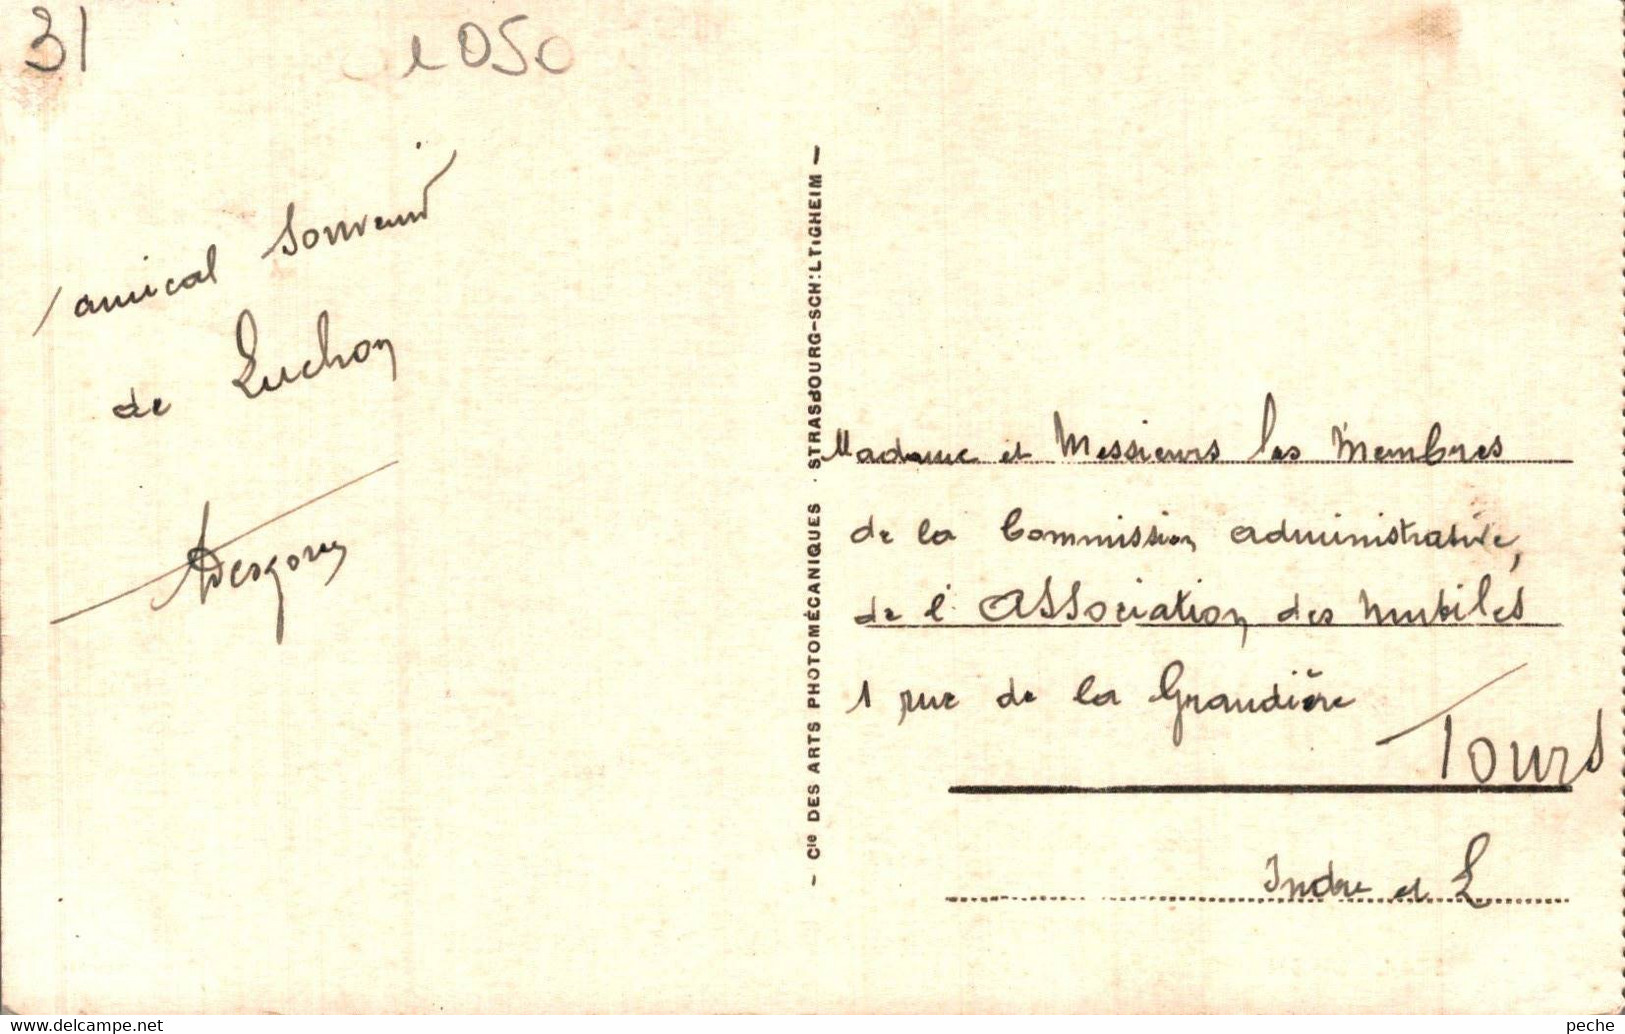 31
1050
amical souvenir
de Luchon
— Cie DES ARTS PHOTOMÉCANIQUES · STRASBOURG-SCHILTIGHEIM —
Madame et Messieurs les Membres
de la Commission administrative,
de l'Association des mutilés
1 rue de la Grandière
Tours
Indre et L
www.delcampe.net
peche